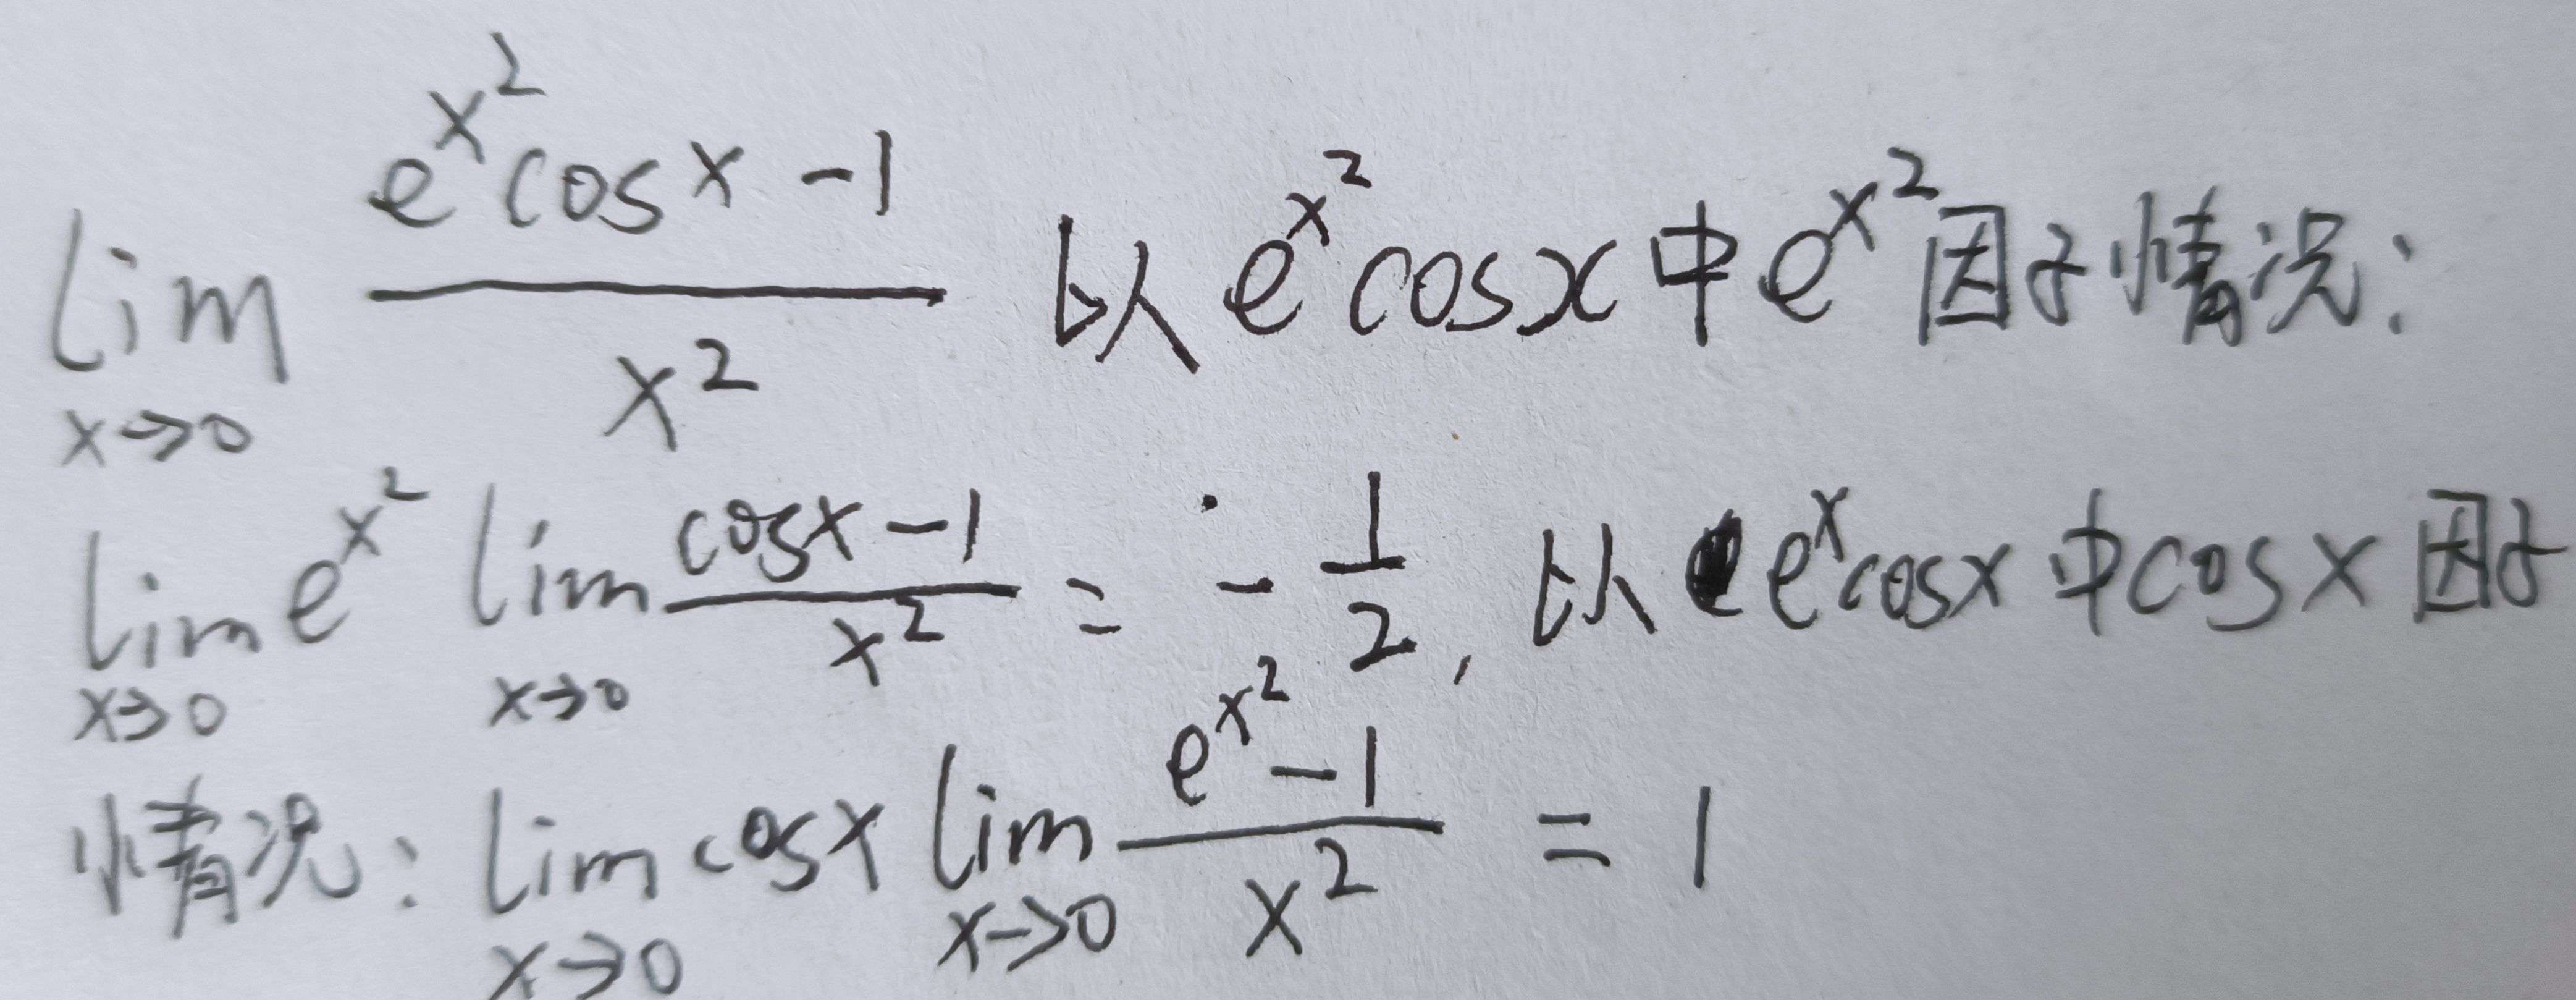 lim x→0 (e^{x^2} cos x − 1) / x^2 以 e^{x^2} cos x 中 e^{x^2} 因子情况:
lim x→0 e^{x^2} lim x→0 (cos x − 1) / x^2 = − 1/2, 以 e^x cos x 中 cos x 因子
情况: lim x→0 cos x lim x→0 (e^{x^2} − 1) / x^2 = 1